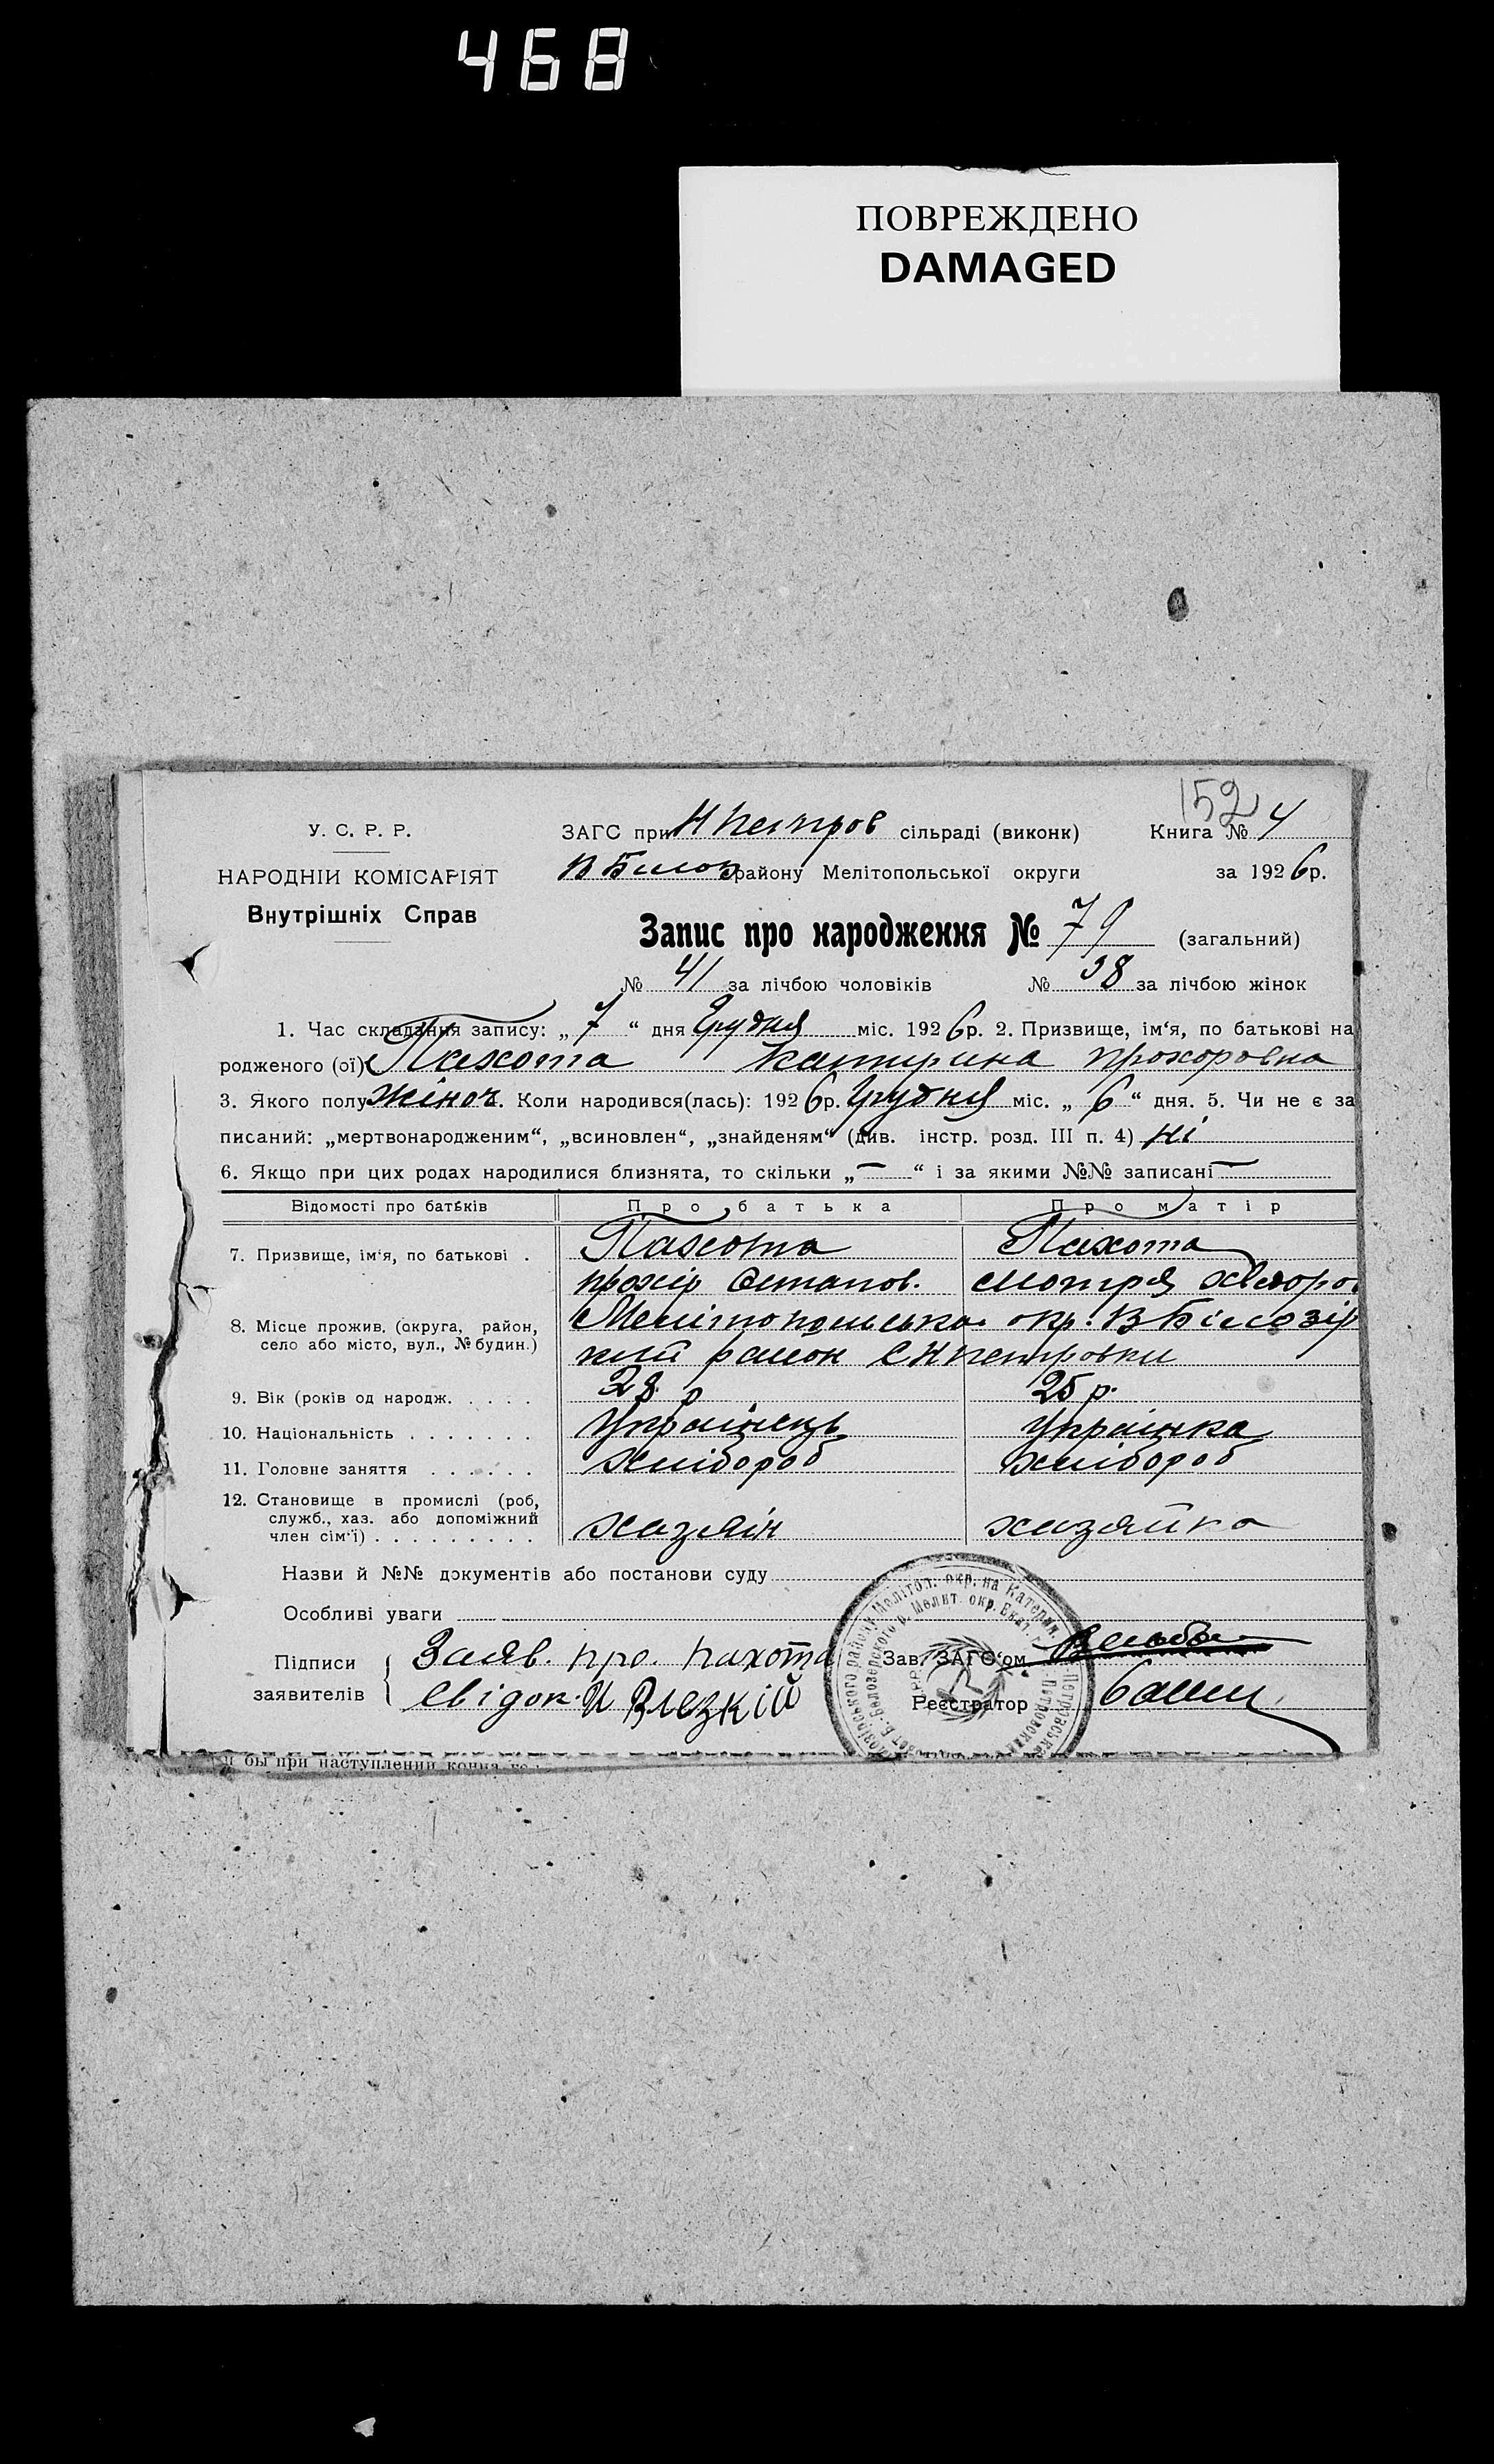 468
ПОВРЕЖДЕНО
DAMAGED
152
У. С. Р. Р.
ЗАГС при Н Петров сільраді (виконк) Книга № 4
НАРОДНІЙ КОМІСАРІЯТ
В Билоз району Мелітопольської округи за 1926р.
Внутрішніх Справ
Запис про народження № 79 (загальний)
№ 41 за лічбою чоловіків № 38 за лічбою жінок
1. Час складання запису: „ 7 “ дня Грудня міс. 1926р. 2. Призвище, ім‘я, по батькові на
родженого (ої) Пахота Катирина Прохоровна
3. Якого полу жіноч. Коли народився(лась): 1926р. Грудня міс. „ 6 “ дня. 5. Чи не є за
писаний: „мертвонародженим“, „всиновлен“, „знайденям“ (див. інстр. розд. III п. 4) ні
6. Якщо при цих родах народилися близнята, то скільки „ — “ і за якими №№ записані —
Відомості про батьків Про батька Про матір
7. Призвище, ім‘я, по батькові . Пахота Пахота
прохір Остапов. Мотря Хведоро
8. Місце прожив. (округа, район, Мелітопольська окр. В Білозір
село або місто, вул., № будин.)
кий район С Н петровки
9. Вік (років од народж. . . . . 28 р 25 р.
10. Національність . . . . . . . Українець Українка
11. Головне заняття . . . . . . хлібороб хлібороб
12. Становище в промислі (роб,
служб., хаз. або допоміжний
член сім‘ї) . . . . . . . . . хазяїн хазяйка
Назви й №№ документів або постанови суду
Особливі уваги
Підписи Заяв. про. пахота Зав. ЗАГС‘ом
заявителів Свідок И Влезкій Реєстратор
бы при наступлении конца